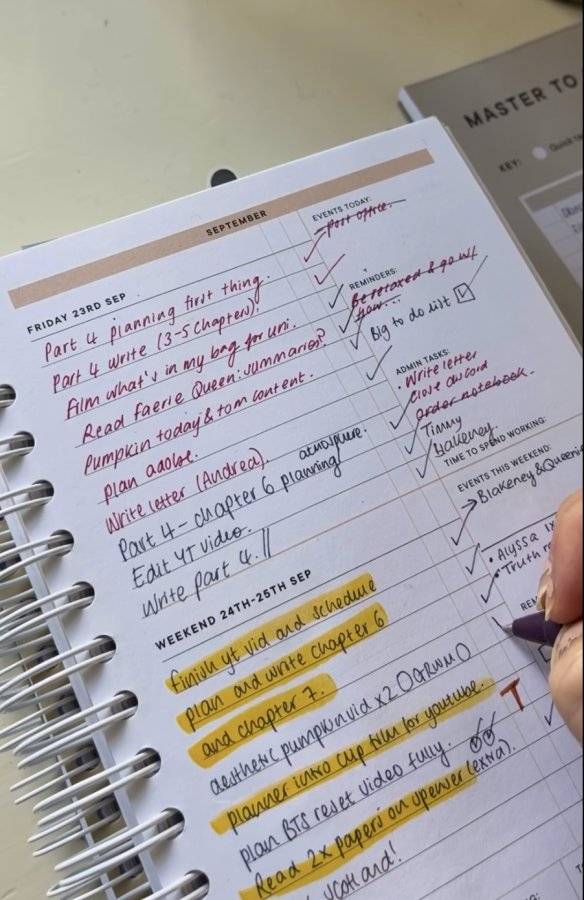 MASTER TO
KEY:
SEPTEMBER
FRIDAY 23RD SEP
Part 4 planning first thing.
Part 4 write (3-5 chapters).
Film what's in my bag for uni.
Read Faerie Queen: summaries?
Pumpkin today & tom content.
plan adobe.
Write letter (Andrea).
Part 4 - chapter 6 planning atmosphere.
Edit YT video.
Write part 4. ||
EVENTS TODAY:
Post office.
REMINDERS:
Be relaxed & go w/
flow...
Big to do list
ADMIN TASKS:
• Write letter
Order notebook.
Timmy
Blakeney.
TIME TO SPEND WORKING:
WEEKEND 24TH-25TH SEP
finish yt vid and schedule
plan and write chapter 6
and chapter 7.
aesthetic pumpkin vid x2 O GRWM O
planner intro clip film for youtube. T
plan BTS reset video fully.
Read 2x papers on upewer (extra).
Scotland!
EVENTS THIS WEEKEND:
Blakeney & Queenie
• Alyssa
• Truth